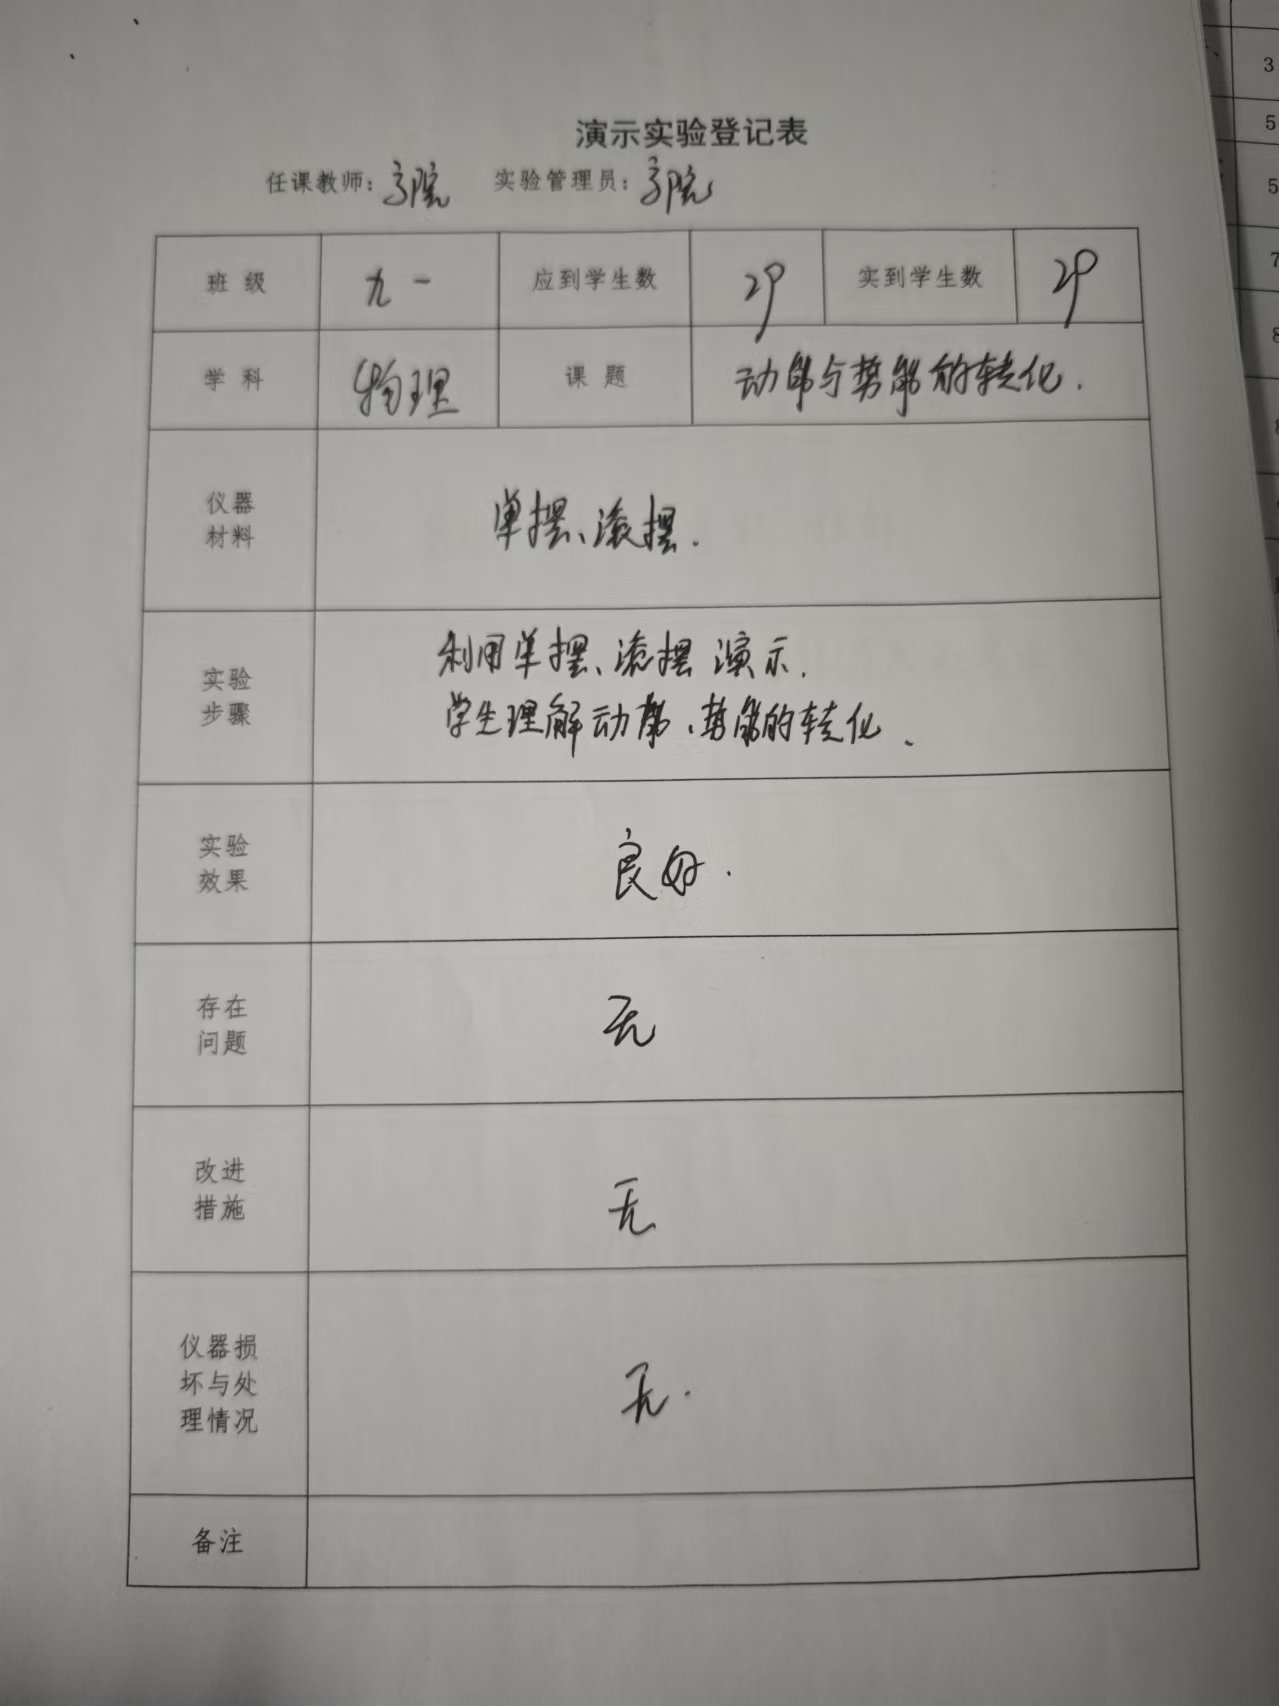 演示实验登记表
任课教师： 实验管理员：
班级 九一 应到学生数 29 实到学生数 29
学科 物理 课题 动能与势能的转化.
仪器
材料
单摆、滚摆.
实验
步骤
利用单摆、滚摆演示.
学生理解动能、势能的转化.
实验
效果
良好.
存在
问题
无
改进
措施
无
仪器损
坏与处
理情况
无.
备注
3
5
5
7
8